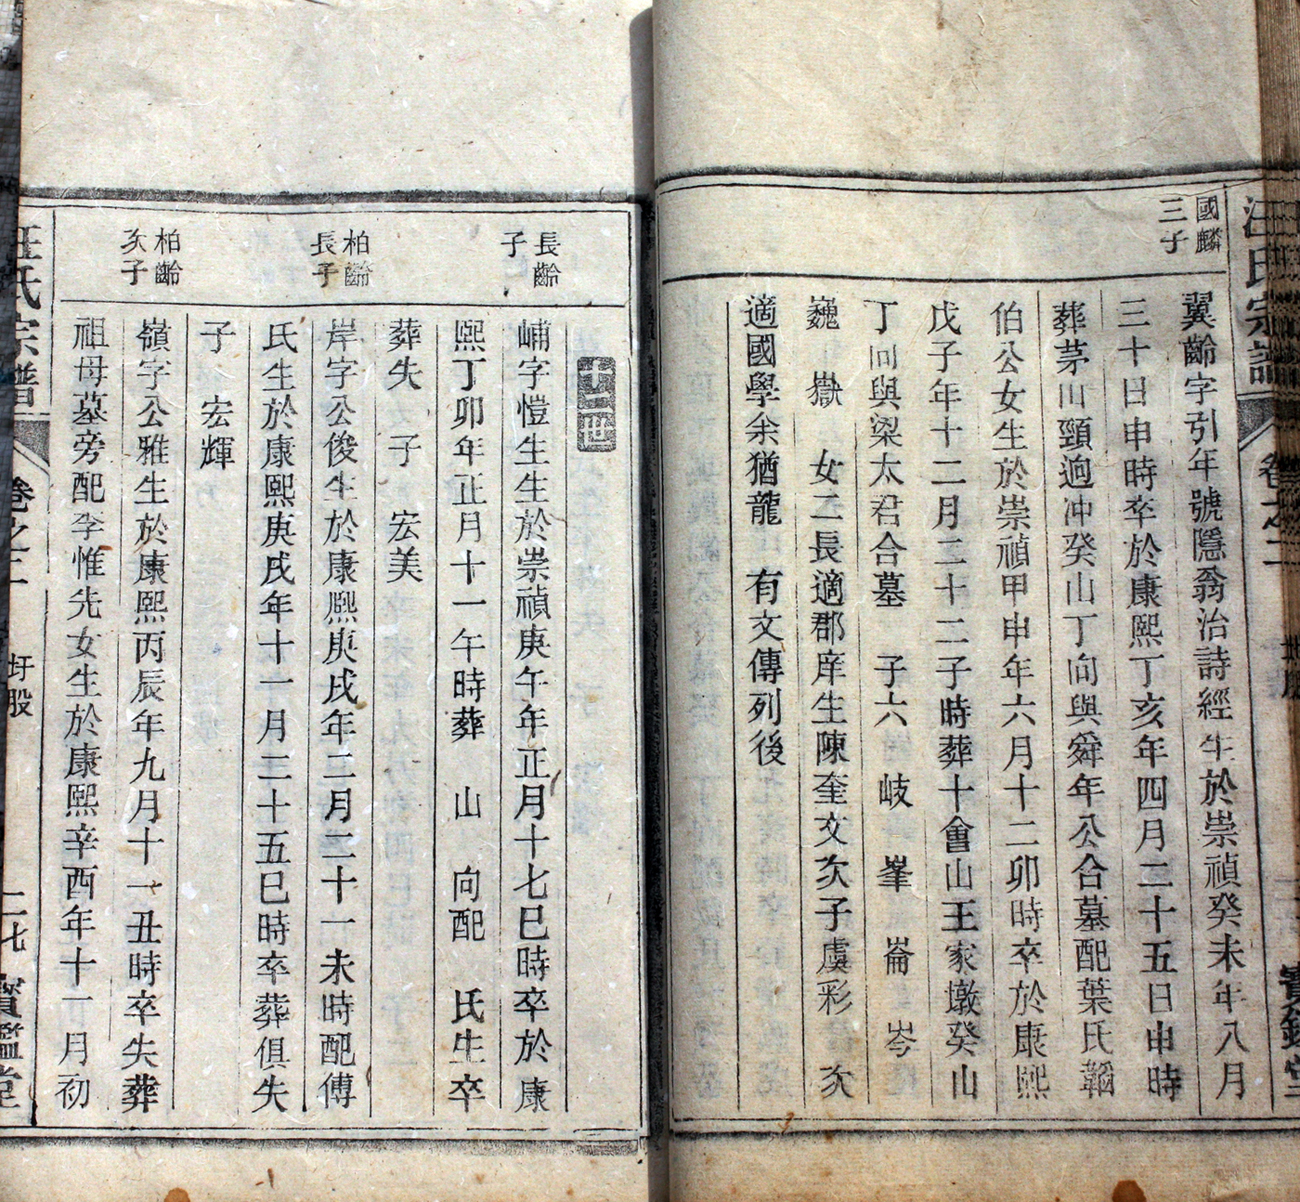 國麟
三子
翼齡字引年號隱翁治詩經生於崇禎癸未年八月
三十日申時卒於康熙丁亥年四月二十五日申時
葬茅川頸逈冲癸山丁向與舜年公合墓配葉氏韜
伯公女生於崇禎甲申年六月十二卯時卒於康熙
戊子年十二月二十二子時葬十會山王家墩癸山
丁向與梁太君合墓 子六岐 峯 崙 岑
巍 嶽 女二長適郡庠生陳奎文次子虞彩 次
適國學余猶龍 有文傳列後
十二世
長齡
子
峬字愷生生於崇禎庚午年正月十七巳時卒於康
熙丁卯年正月十一午時葬 山 向配 氏生卒
葬失 子 宏美
柏齡
長子
岸字公俊生於康熙庚戌年二月二十一未時配傅
氏生於康熙庚戌年十一月二十五巳時卒葬俱失
子 宏輝
柏齡
次子
嶺字公雅生於康熙丙辰年九月十一丑時卒失葬
祖母墓旁配李惟先女生於康熙辛酉年十一月初
汪氏宗譜 卷之二 圩股 二七 寶鑑堂